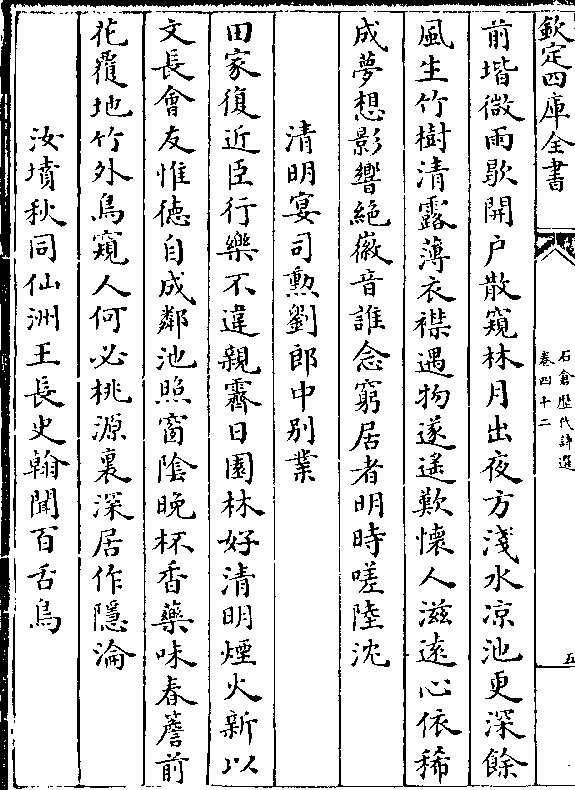 欽定四庫全書
石倉歴代詩選
卷四十二
五
前堦微雨歇開户散窺林月出夜方淺水凉池更深餘
風生竹樹清露薄衣襟遇物遂遥歎懷人滋遠心依稀
成夢想影響絶徽音誰念窮居者明時嗟陸沈
清明宴司勲劉郎中别業
田家復近臣行樂不違親霽日園林好清明煙火新以
文長會友惟德自成鄰池照窗隂晚杯香藥味春簷前
花覆地竹外鳥窺人何必桃源裏深居作隱淪
汝墳秋同仙洲王長史翰聞百舌鳥